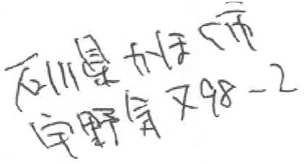 石川県かほく市
宇野気ヌ98-2